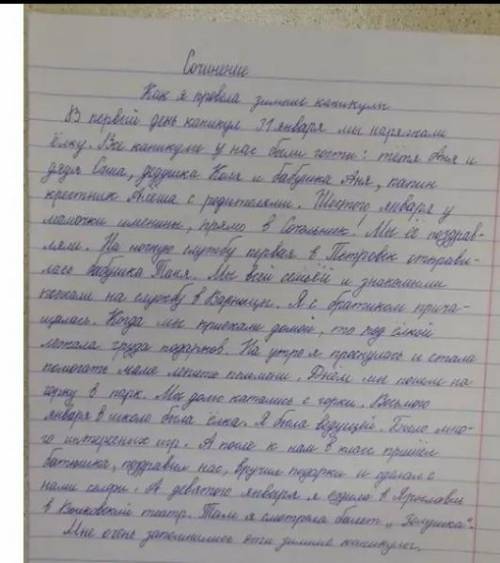 Сочинение
Как я провела зимние каникулы
В первый день каникул 31 января мы наряжали
ёлку. Все каникулы у нас были гости: тётя и
дядя Саша, дедушка Коля и бабушка Аня, папин
крестник Алёша с родителями. Шестого января у
мамочки именины, прямо в Сочельник! Мы её поздрав-
ляли. На ночную службу первая в Петровск отправи-
лась бабушка Таня. Мы всей семьёй и знакомыми
поехали на службу в Варницы. Я с братиком прича-
щалась. Когда мы приехали домой, то под ёлкой
лежала груда подарков. На утро я проснулась и стала
помогать маме лепить пельмени. Днём мы пошли на
горку в парк. Мы долго катались с горки. Восьмого
января в школе была ёлка. Я была ведущей. Было мно-
го интересных игр. А после к нам в класс пришёл
батюшка, поздравил нас, вручил подарки и сделал с
нами селфи. А девятого января я ездила в Ярославль
в Волковский театр. Там я смотрела балет „Золушка".
Мне очень запомнились эти зимние каникулы.